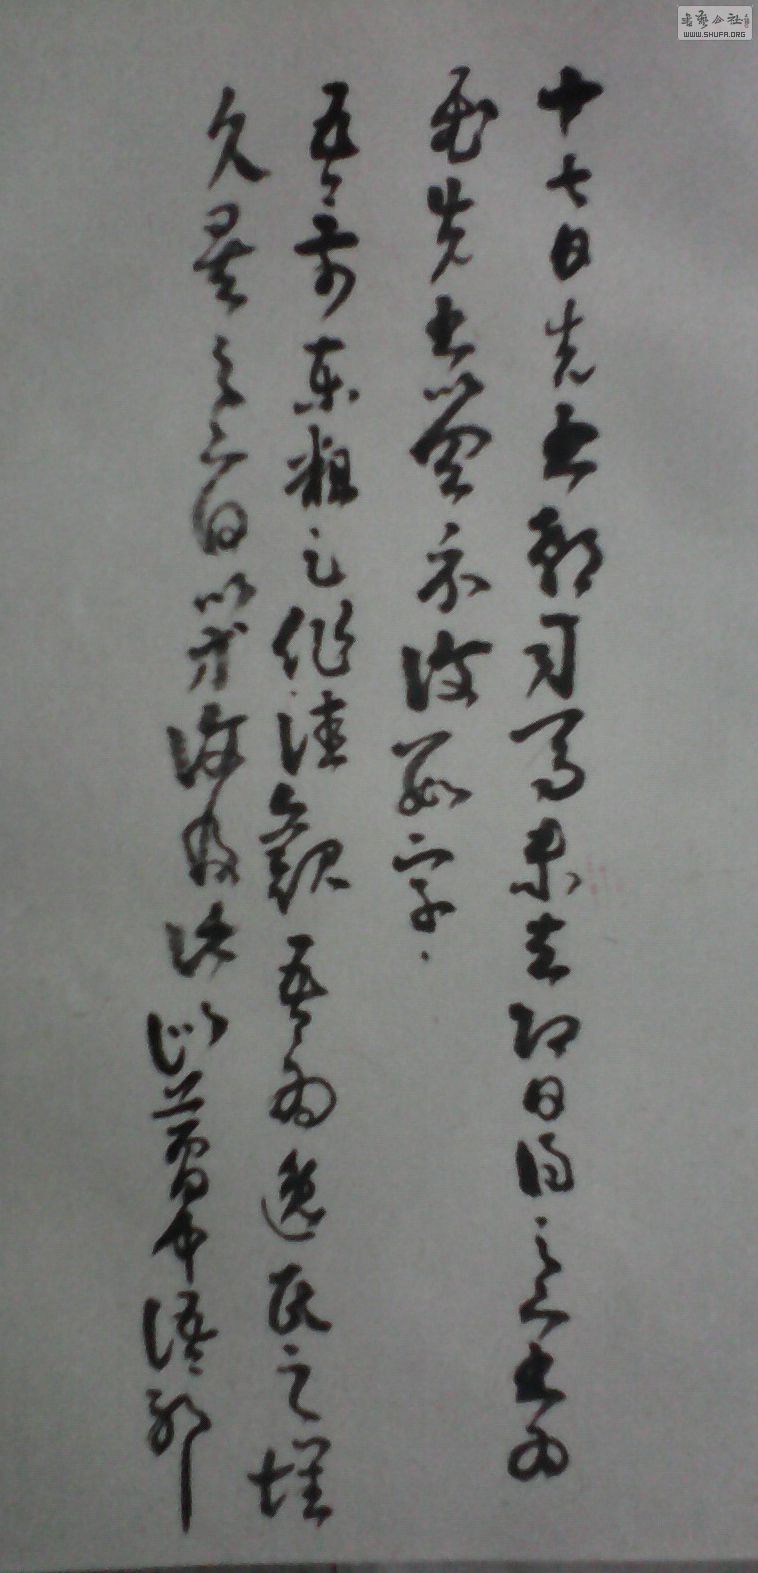 書藝公社
WWW.SHUFA.ORG
十七日先書郗司馬未去即日得足下書為
慰先書以具示復數字
吾前東粗足作佳觀吾為逸民之懷
久矣足下何以方復及此似夢中語耶